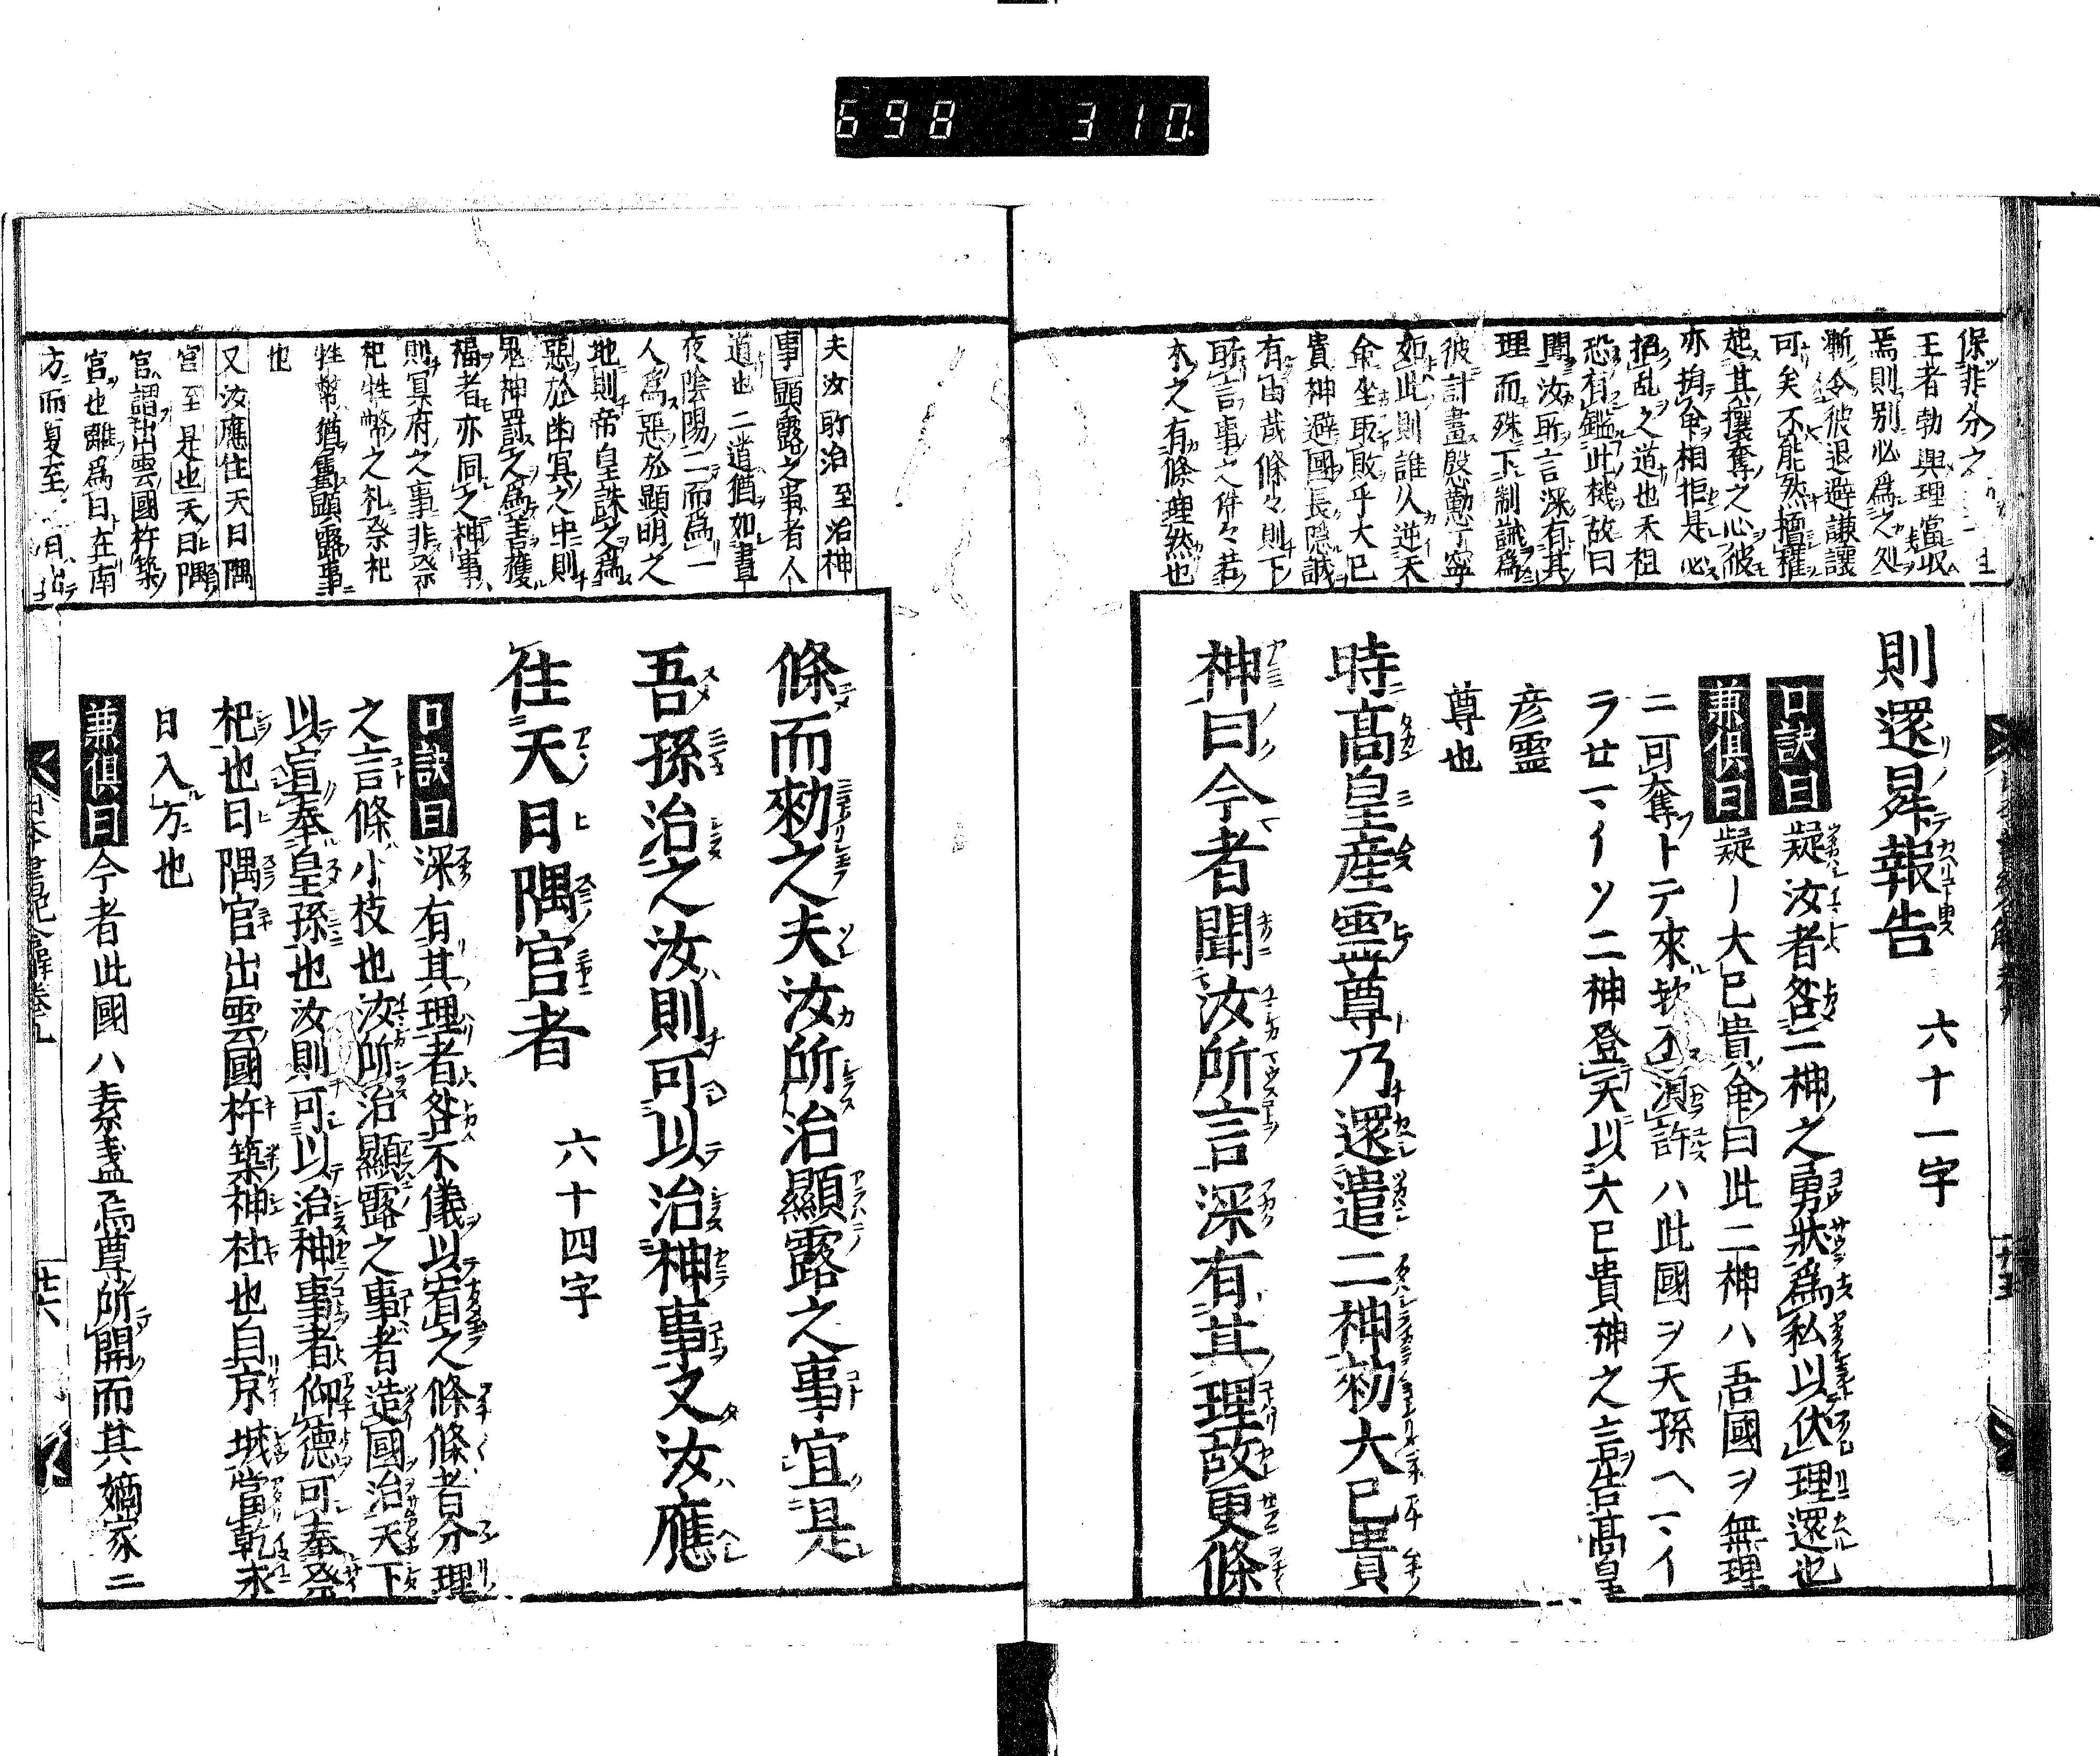 698 310.
保非分之
王者勃興理當収
焉則別必為之処
漸令彼退避謙讓
可矣不能然擅權
起其攘奪之心彼
亦拘命相拒是必
招乱之道也天祖
恐有鑑此機故曰
聞汝所言深有其
理而殊下制誠為
彼計畫慇懃丁寧
如此則誰人逆天
命坐取敗乎大己
貴神避國長隠誠
有由哉條々則下
所言事之件々若
木之有條理然也
則還昇報告 六十一字
口訣曰 疑汝者咎二神之勇狀為私以伏理還也
兼倶曰 疑ー大己貴命曰此二神ハ吾國ヲ無理
ニ可奪トテ來欤不須許ハ此國ヲ天孫ヘマヽイ
ラ廿マヽイソ二神登天以大己貴神之言告高皇
彦霊
尊也
時高皇産霊尊乃還遣二神勑大己貴
神曰今者聞汝所言深有其理故更條
夫汝所治至治神
事 顯露之事者人
道也二道猶如晝
夜陰陽二而為一
人為惡於顯明之
地則帝皇誅之為
惡於幽冥之中則
鬼神罰之為善獲
福者亦同之神事
則冥府之事非祭
祀牲幣之礼祭祀
牲幣猶属顯露事
也
又汝應住天日隅
宮至是也 天日隅
宮謂出雲國杵築
宮也離為日在南
方而夏至日出
條而勑之夫汝所治顯露之事宜是
吾孫治之汝則可以治神事又汝應
住天日隅宮者 六十四字
口訣曰 深有其理者咎不儀以宥之條條者分理
之言條小枝也汝所治顯露之事者造國治天下
以宣奉皇孫也汝則可以治神事者仰德可奉祭
祀也日隅宮出雲國杵築神社也自京城當乾末
日入方也
兼倶曰 今者此國ハ素盞烏尊所開而其嫡家ニ
日本書紀合解卷九
廿六